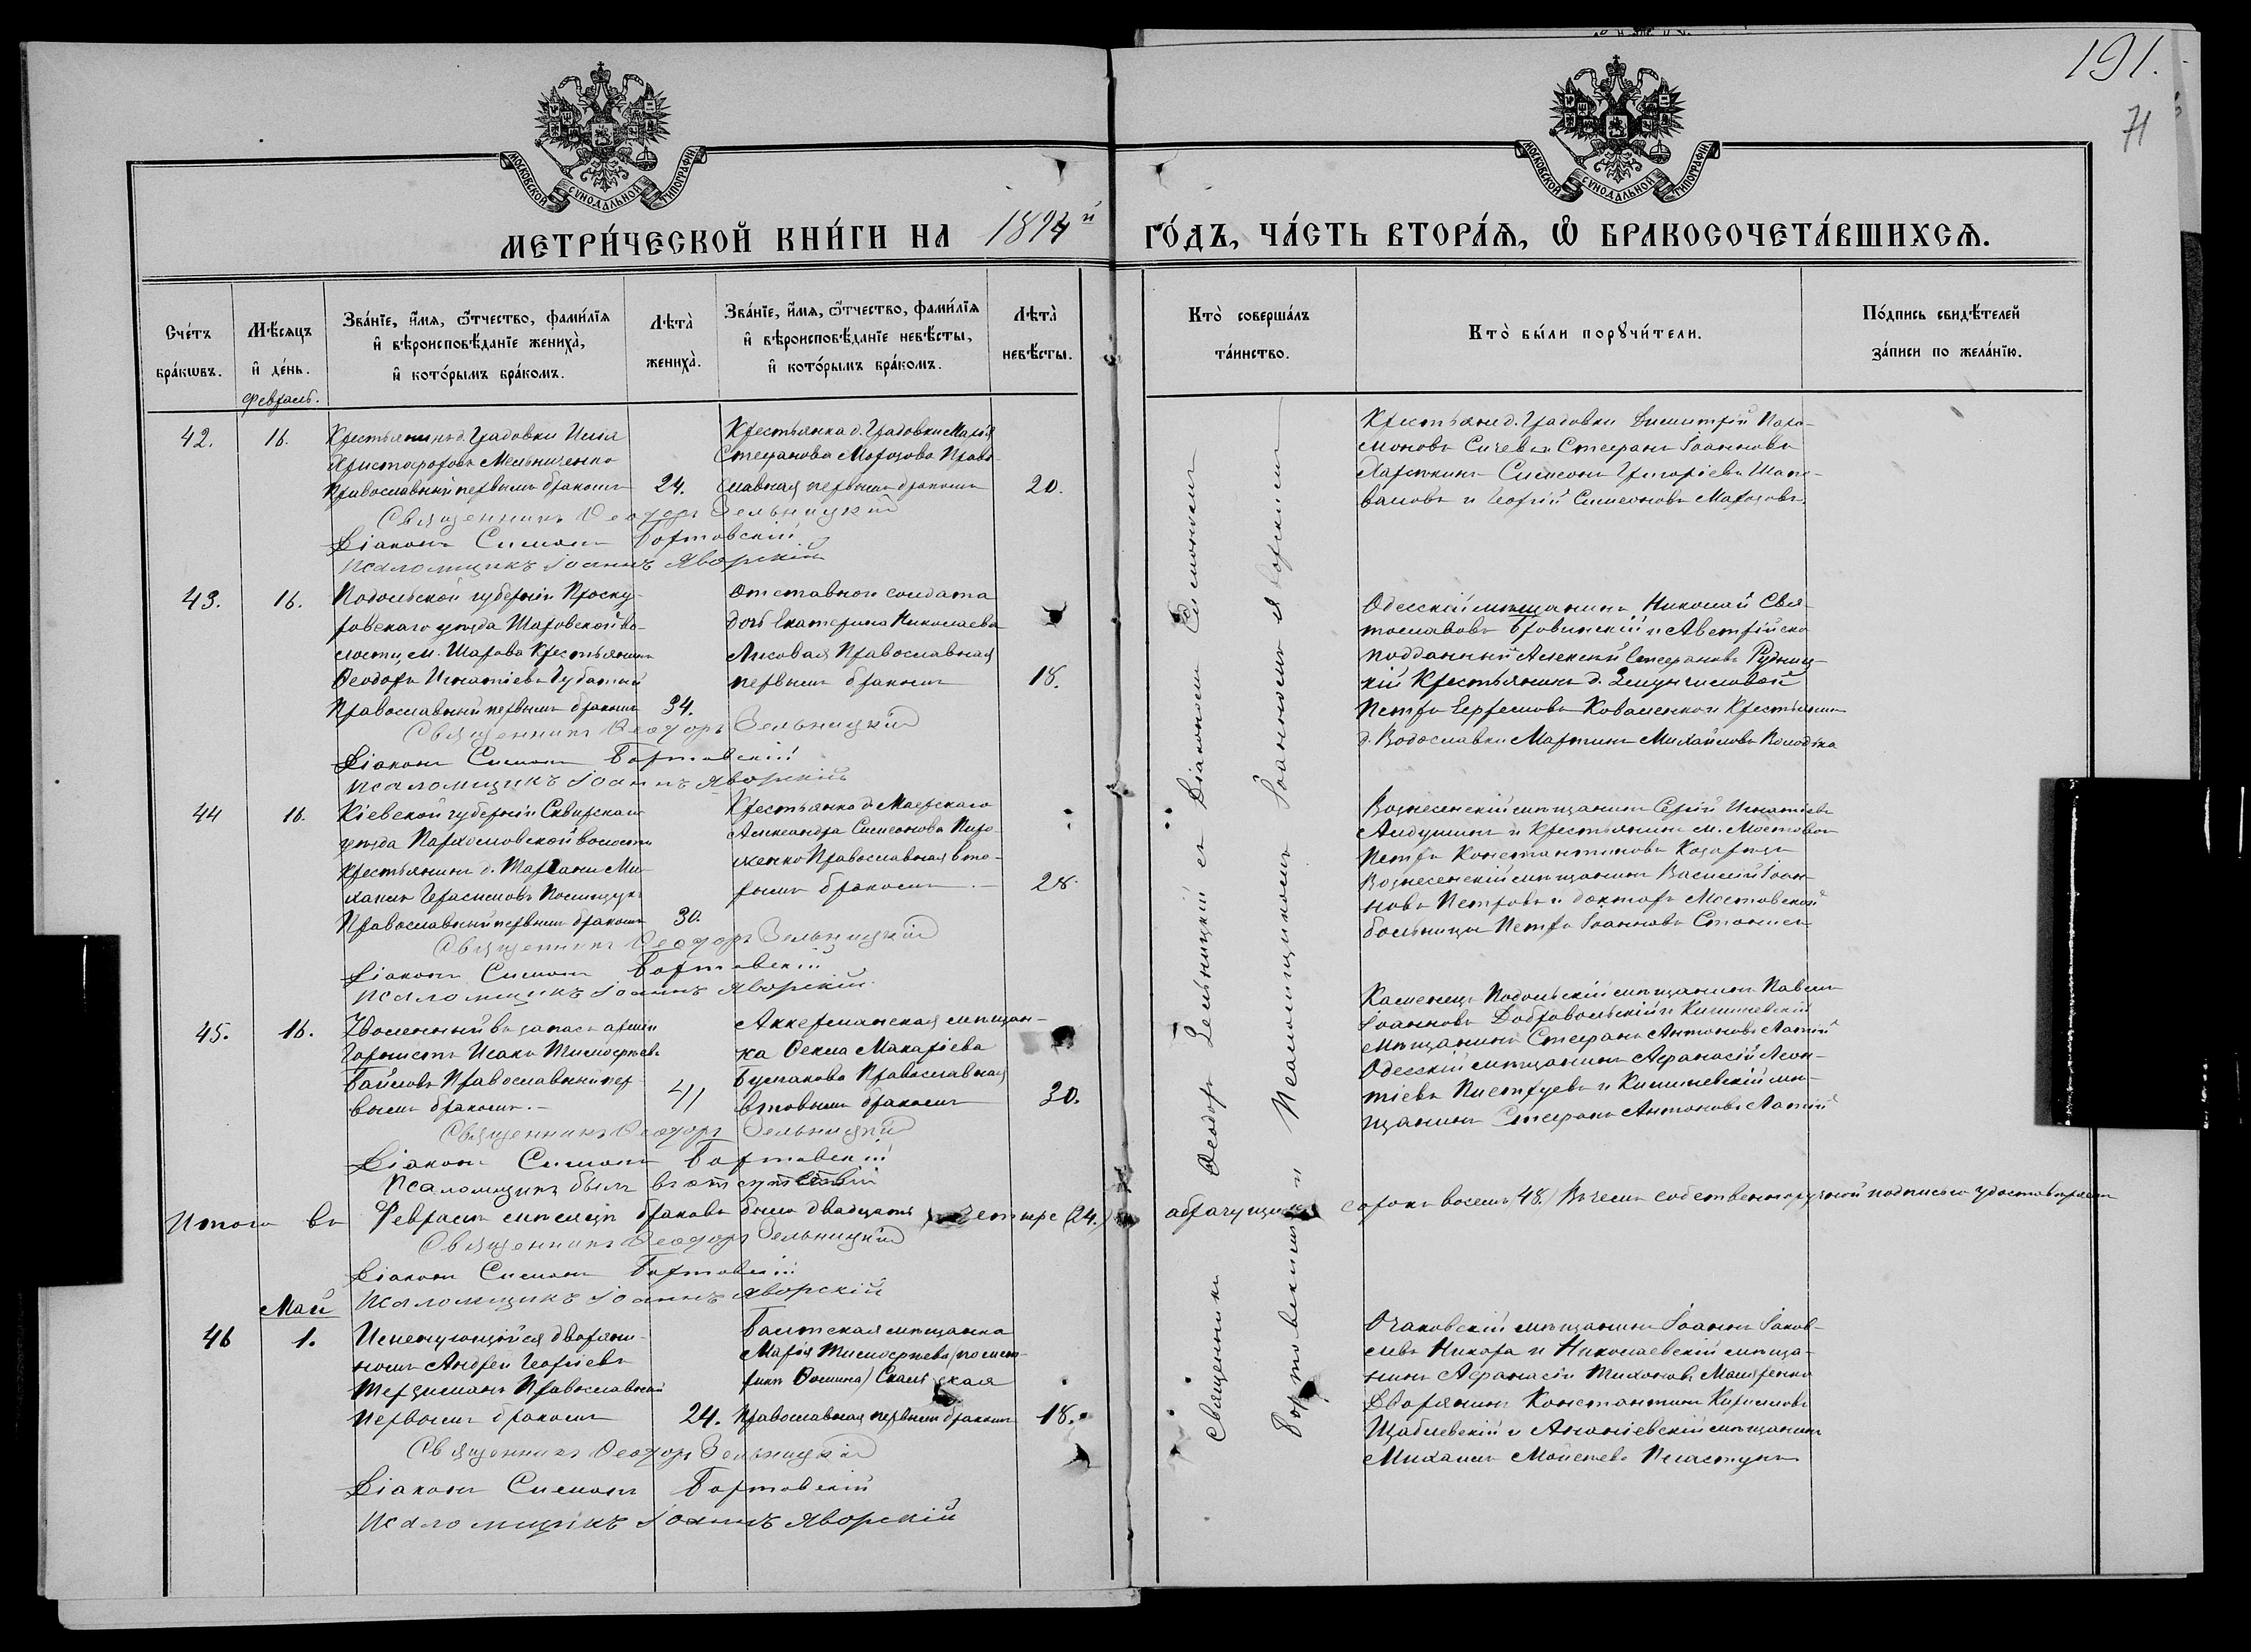 191.
71
МОСКОВСКОЙ СѴНОДАЛЬНОЙ ТИПОГРАФІИ
МОСКОВСКОЙ СѴНОДАЛЬНОЙ ТИПОГРАФІИ
МЕТРИ́ЧЕСКОЙ КНИ́ГИ НА 1894й ГО́ДЪ, ЧА́СТЬ ВТОРА́Ѧ, Ѡ БРАКОСОЧЕТА́ВШИХСѦ.
Сче́тъ бра́кωвъ.
Мѣ́сяцъ и де́нь.
Зва́нїе, и́мя, ѻ́тчество, фами́лїя и вѣроисповѣ́данїе жениха̀, и кото́рымъ бра́комъ.
Лѣта̀ жениха̀.
Зва́нїе, и́мя, ѻ́тчество, фами́лїя и вѣроисповѣ́данїе невѣ́сты, и кото́рымъ бра́комъ.
Лѣта̀ невѣ́сты.
Кто̀ соверша́лъ та́инство.
Кто̀ бы́ли порꙋчи́тели.
По́дпись свидѣ́телей за́писи по жела́нїю.
Февраль.
42.
16.
Крестьянинъ д. Градовки Илія
Христофоровъ Мельниченко
Православный первымъ бракомъ
24.
Крестьянка д. Градовки Марія
Стефанова Морозова Право-
славная первымъ бракомъ
20.
Крестьяне д. Градовки Димитрій Пара-
моновъ Сичевъ и Стефанъ Іоанновъ
Симеонъ Григоріевъ Шапо-
валовъ и Георгій Симеоновъ Морозовъ.
Священникъ Ѳеодоръ Зельницкій
Діаконъ Симонъ Бортовскій
Псаломщикъ Іоаннъ Яворскій
43.
16.
Подольской губерніи Проску-
ровскаго уѣзда Шаровской во-
лости, м. Шарова Крестьянинъ
Ѳеодоръ Игнатіевъ Губатый
Православный первымъ бракомъ
34.
Отставного солдата
дочь Екатерина Николаева
Лисовая Православная
первымъ бракомъ
18.
Одесскій мѣщанинъ Николай Свя-
тославовъ Бровинскій и Австрійско
подданный Алексій Стефановъ Рудниц-
кій Крестьянинъ д.
Петръ Ефремовъ Коваленко и Крестьянинъ
д. Водославки Мартинъ Михайловъ Колодка
Священникъ Ѳеодоръ Зельницкій
Діаконъ Симонъ Бортовскій
Псаломщикъ Іоаннъ Яворскій
44
16.
Кіевской губерніи Сквирскаго
уѣзда Пархомовской волости
Крестьянинъ д. Ми-
хаилъ Герасимовъ
Православный первымъ бракомъ
30.
Крестьянка д. Маерскаго
Александра Симеонова Пиро-
женко Православная вто-
рымъ бракомъ.
28.
Вознесенскій мѣщанинъ Сергій Игнатіевъ
и Крестьянинъ м. Мостовое
Петръ Константиновъ
Вознесенскій мѣщанинъ Василій Іоан-
новъ Петровъ и докторъ Мостовской
больницы Петръ Іоанновъ
Священникъ Ѳеодоръ Зельницкій
Діаконъ Симонъ Бортовскій
Псаломщикъ Іоаннъ Яворскій
45.
16.
Уволенный въ запасъ арміи
Горнистъ Исакъ Тимоѳеевъ
Байловъ Православный пер-
вымъ бракомъ.
41
Аккерманская мѣщан-
ка Ѳекла Макаріева
Булгакова Православная
вторымъ бракомъ
30.
Каменецъ Подольскій мѣщанинъ Павелъ
Іоанновъ Добровольскій и Кишиневскій
мѣщанинъ Стефанъ Антоновъ Латій
Одесскій мѣщанинъ Аѳанасій Леон-
тіевъ Пистругевъ и Кишиневскій мѣ-
щанинъ Стефанъ Антоновъ Латій
Священникъ Ѳеодоръ Зельницкій
Діаконъ Симонъ Бортовскій
Псаломщикъ былъ въ отсутствіи
Итого въ Февралѣ мѣсяцѣ браковъ было двадцать четыре (24.) а брачущихся сорокъ восемь (48.) Въ чемъ собственноручной подписью удостовѣряемъ
Священникъ Ѳеодоръ Зельницкій
Діаконъ Симонъ Бортовскій
Псаломщикъ Іоаннъ Яворскій
Май
46
1.
Именующійся дворяни-
номъ Андрей Георгіевъ
Терзиманъ Православный
первымъ бракомъ
24.
Балтская мѣщанка
Марія Тимоѳеева (по мет-
рикѣ Ѳомина)
Православная первымъ бракомъ
18.
Очаковскій мѣщанинъ Іоаннъ Іаков-
левъ Никора и Николаевскій мѣща-
нинъ Аѳанасій Тихоновъ Маляренко
Дворянинъ Константинъ Кириловъ
Щаблевскій и Ананіевскій мѣщанинъ
Михаилъ Моисеевъ Пластунъ
Священникъ Ѳеодоръ Зельницкій
Діаконъ Симонъ Бортовскій
Псаломщикъ Іоаннъ Яворскій
Священникъ Ѳеодоръ Зельницкій съ Діакономъ Симономъ
Бортовскимъ и Псаломщикомъ Іоанномъ Яворскимъ